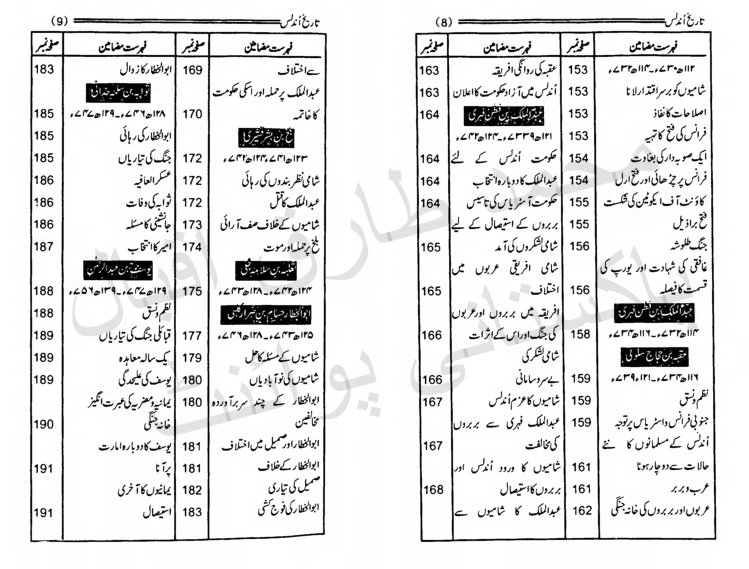 تاریخ اُندلس (8)
فہرست مضامین صفحہ نمبر
۱۱۲ھ/۷۳۰ء۔۱۱۴ھ/۷۳۲ء 153
شامیوں کو برسر اقتدار لانا 153
اصلاحات کا نفاذ 153
فرانس کی فتح کا تہیہ 154
ایک صوبہ دار کی بغاوت 154
فرانس پر چڑھائی اور فتح ارل 154
کاؤنٹ آف ایکوٹین کی شکست 155
فتح برازیل 155
جنگ طلوشہ 156
غافقی کی شہادت اور یورپ کی
قسمت کا فیصلہ 156
عبدالملک بن قطن فہری
۱۱۴ھ/۷۳۲ء۔۱۱۶ھ/۷۳۴ء 158
عقبہ بن حجاج سلولی
۱۱۶ھ/۷۳۴ء۔۱۲۱ھ/۷۳۹ء 159
نظم و نسق 159
جنوبی فرانس و اسٹریاس پر توجہ 159
اُندلس کے مسلمانوں کا نئے
حالات سے دوچار ہونا 161
عرب و بربر 161
عربوں اور بربروں کی خانہ جنگی 162
فہرست مضامین صفحہ نمبر
عقبہ کی روانگی افریقہ 163
اُندلس میں آزاد حکومت کا اعلان 163
عبدالملک بن قطن فہری 164
۱۲۱ھ/۷۳۳۹ء۔۱۲۴ھ/۷۴۲ء
حکومت اُندلس کے لئے 164
عبدالملک کا دوبارہ انتخاب 164
حکومت آسٹریاس کی تاسیس 164
بربروں کے استیصال کے لیے
شامی لشکروں کی آمد 165
شامی افریقی عربوں میں
اختلاف 165
افریقہ میں بربروں اور عربوں
کی جنگ اور اس کے اثرات 166
شامی لشکر کی
بے سروسامانی 166
شامیوں کا عزم اُندلس 167
عبدالملک فہری سے بربروں
کی مخالفت 167
شامیوں کا ورود اُندلس اور
بربروں کا استیصال 168
عبدالملک کا شامیوں سے
تاریخ اُندلس (9)
فہرست مضامین صفحہ نمبر
سے اختلاف 169
عبدالملک پر حملہ اور اسکی حکومت
کا خاتمہ 170
بلخ بن بشر قشیری
۱۲۳ھ/۷۴۱ء،۱۲۴ھ/۷۴۲ء
شامی نظر بندوں کی رہائی 172
عبدالملک کا قتل 172
شامیوں کے خلاف صف آرائی 173
بلخ پر حملہ اور موت 174
ثعلبہ بن سلامہ 175
۱۲۴ھ/۷۴۲ء۔۱۲۸ھ/۷۴۳ء
ابوالخطار حسام بن ضرار کلبی
۱۲۵ھ/۷۴۳ء۔۱۲۸ھ/۷۴۶ء 177
شامیوں کے مسئلہ کا حل 179
شامیوں کی نوآبادیاں 180
ابوالخطار کے چند سربرآوردہ 180
مخالفین
ابوالخطار اور صمیل میں اختلاف 181
ابوالخطار کے خلاف 181
صمیل کی تیاری 182
ابوالخطار کی فوج کشی 183
فہرست مضامین صفحہ نمبر
ابوالخطار کا زوال 183
ثوابہ بن سلمہ
۱۲۸ھ/۷۴۶ء۔۱۲۹ھ/۷۴۷ء 185
ابوالخطار کی رہائی 185
جنگ کی تیاریاں 185
عسکر العافیہ 186
ثوابہ کی وفات 186
جانشینی کا مسئلہ 186
امیر کا انتخاب 187
یوسف بن عبدالرحمٰن
۱۲۹ھ/۷۴۷ء۔۱۳۹ھ/۷۵۶ء 188
نظم و نسق 188
قبائلی جنگ کی تیاریاں 189
یک سالہ معاہدہ 189
یوسف کی علیحدگی 189
یمانیہ و مضریہ کی عبرت انگیز
خانہ جنگی 190
یوسف کا دوبارہ امارت
پر آنا 191
یمانیوں کا آخری
استیصال 191
محمد طارق اقبال
پاکستانی پوائنٹ